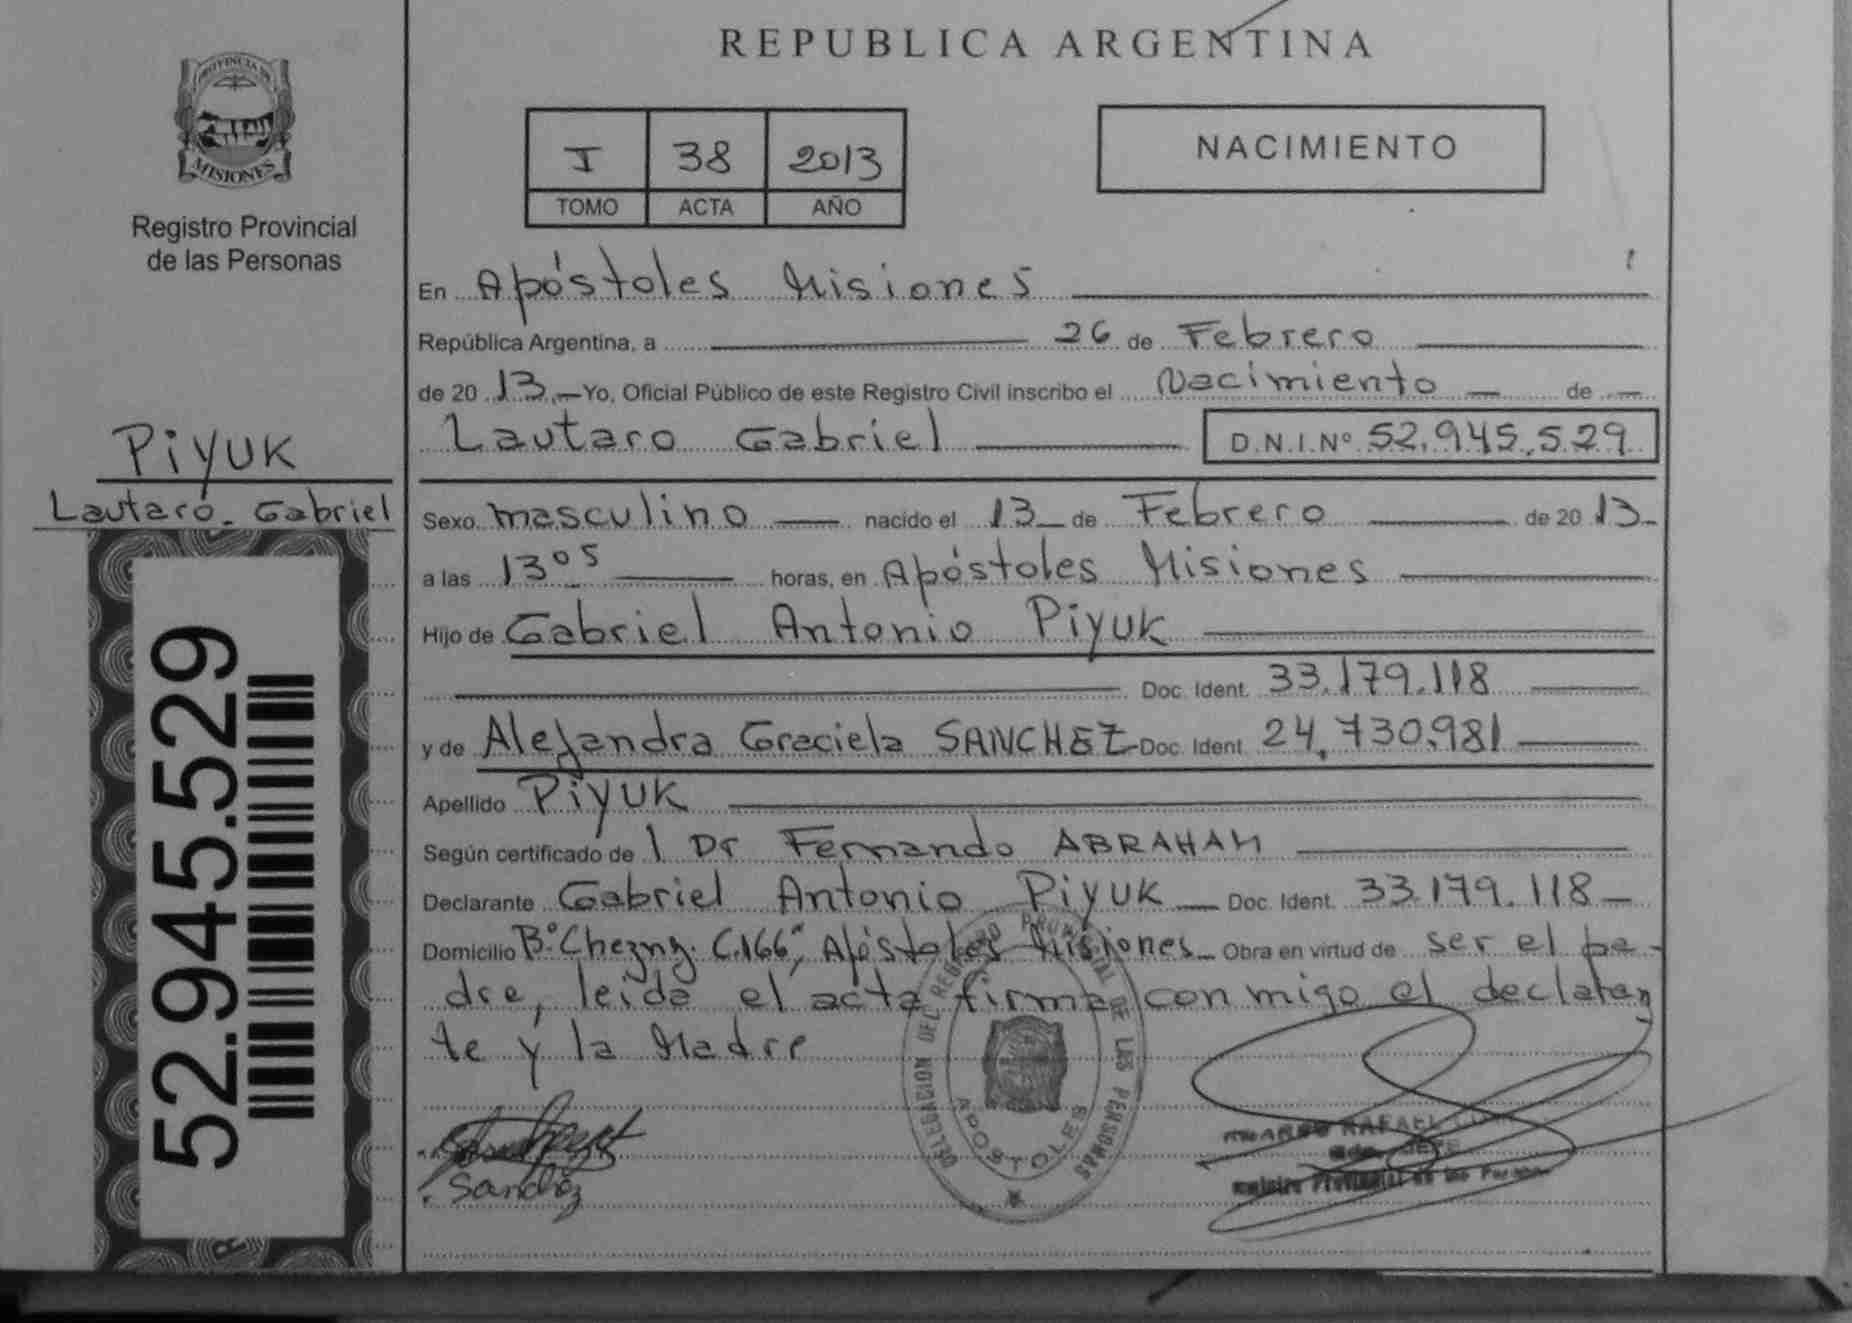 PROVINCIA DE
MISIONES
Registro Provincial
de las Personas
PIYUK
Lautaro Gabriel
52.945.529
REPUBLICA ARGENTINA
I 38 2013
TOMO ACTA AÑO
NACIMIENTO
En Apóstoles Misiones
República Argentina, a 26 de Febrero
de 20 13 Yo, Oficial Público de este Registro Civil inscribo el Nacimiento de
Lautaro Gabriel D.N.I.Nº 52.945.529
Sexo masculino nacido el 13 de Febrero de 20 13
a las 13⁰⁵ horas, en Apóstoles Misiones
Hijo de Gabriel Antonio Piyuk
Doc. Ident. 33.179.118
y de Alejandra Graciela SANCHEZ Doc. Ident. 24.730.981
Apellido PIYUK
Según certificado de l Dr Fernando ABRAHAM
Declarante Gabriel Antonio Piyuk Doc. Ident. 33.179.118
Domicilio Bº C.166, Apóstoles Misiones Obra en virtud de ser el pa-
dre, leida el acta firma con migo el declaran
te y la Madre
DELEGACION DEL REGISTRO PROVINCIAL DE LAS PERSONAS
APOSTOLES
RAFAEL
JEFE